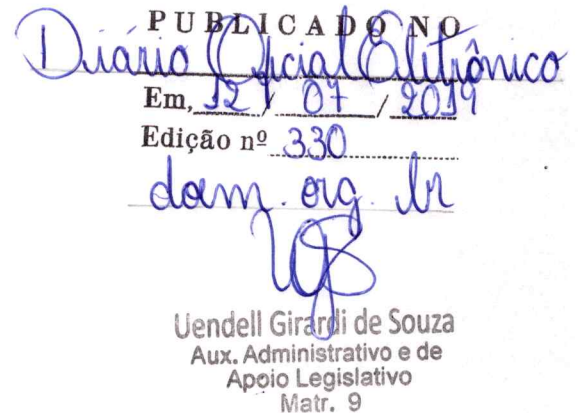 PUBLICADO NO
Diário Oficial Eletrônico
Em, 12 / 07 / 2019
Edição nº 330
dom.org.br
Uendell Girardi de Souza
Aux. Administrativo e de
Apoio Legislativo
Matr. 9